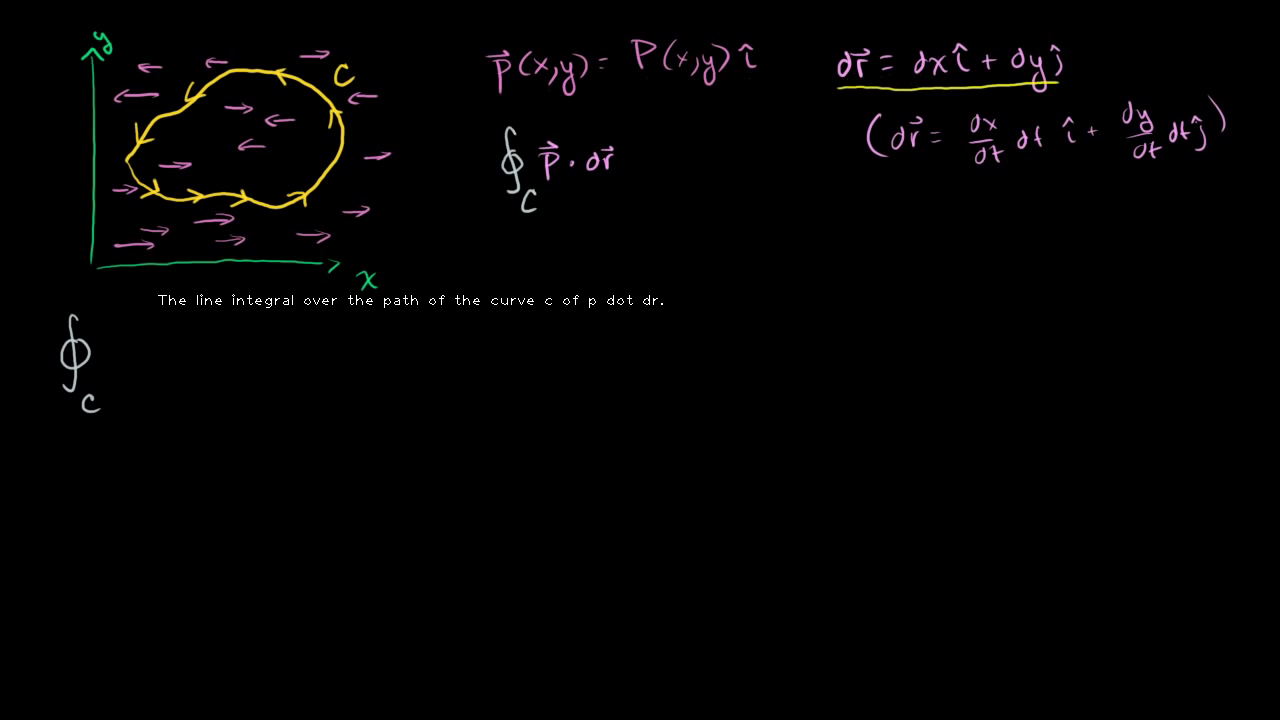 y
C
x
p⃗(x,y) = P(x,y) î
∮_C p⃗ · dr⃗
dr⃗ = dx î + dy ĵ
(dr⃗ = dx/dt dt î + dy/dt dt ĵ)
The line integral over the path of the curve c of p dot dr.
∮_C